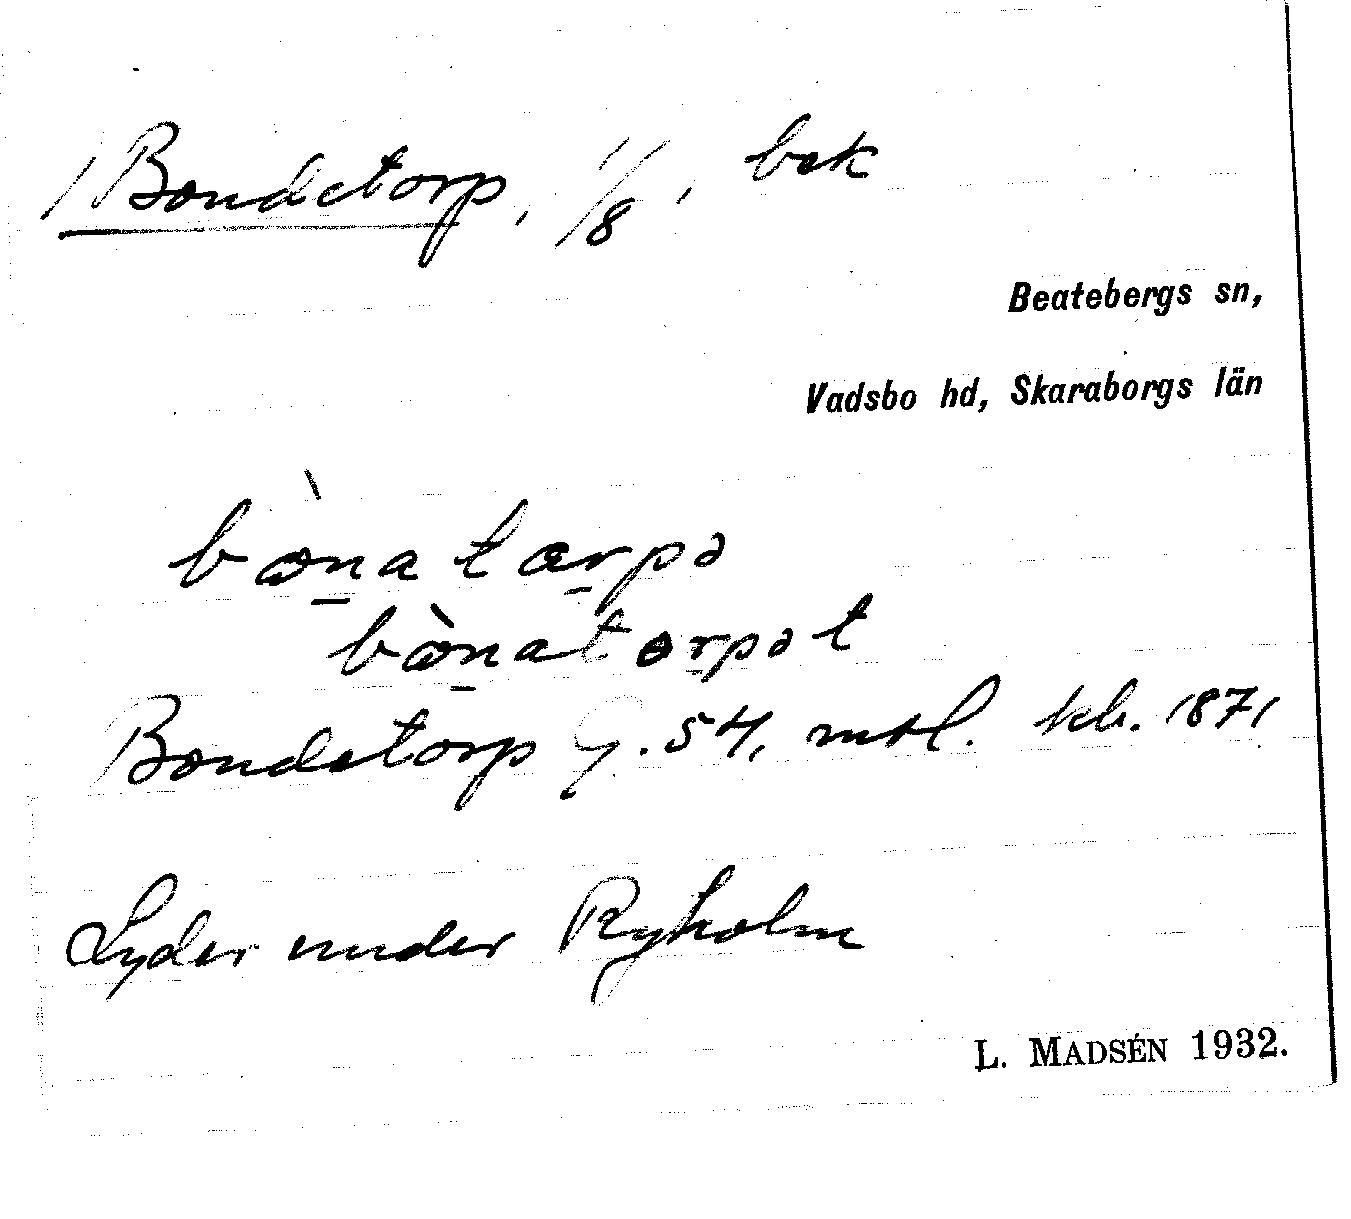 / Bondetorp, 1/8, bek
Beatebergs sn,
Vadsbo hd, Skaraborgs län
bònatærpə
bònatorpət
Bondetorp G. 54, mtl. kb. 1871
Lyder under Ryholm
L. MADSÉN 1932.